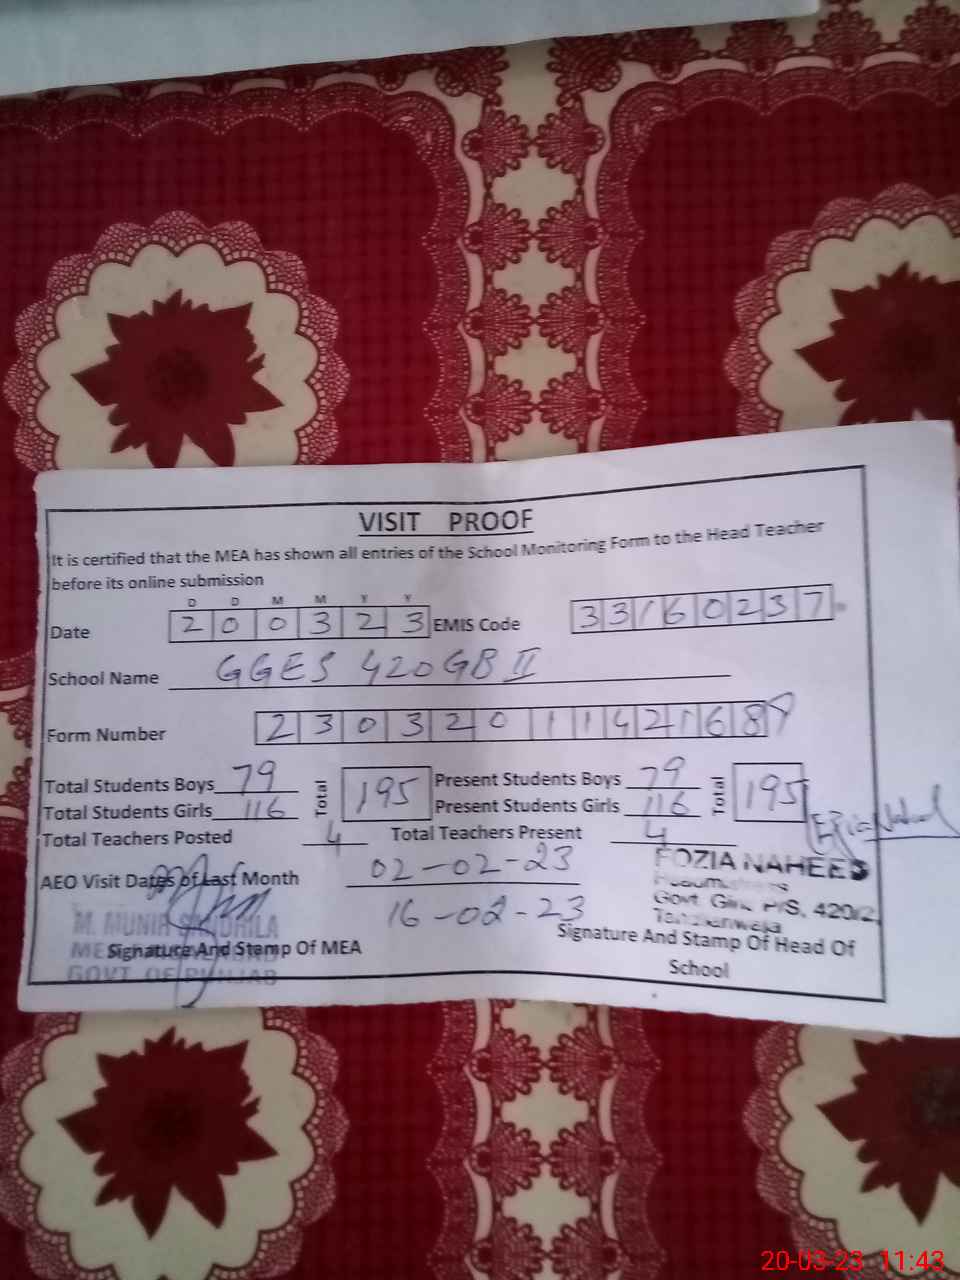 VISIT PROOF
It is certified that the MEA has shown all entries of the School Monitoring Form to the Head Teacher
before its online submission
D D M M Y Y
Date 200323 EMIS Code 33160237
School Name GGES 420GB II
Form Number 2303201142168
Total Students Boys 79 Total 195 Present Students Boys 79 Total 195
Total Students Girls 116 Present Students Girls 116
Total Teachers Posted 4 Total Teachers Present 4
AEO Visit Dates of Last Month 02-02-23
16-02-23
FOZIA NAHEED
Govt.
M. MUNIR
GOVT OF PUNJAB
Signature And Stamp Of MEA
Signature And Stamp Of Head Of
School
20-03-23 11:43